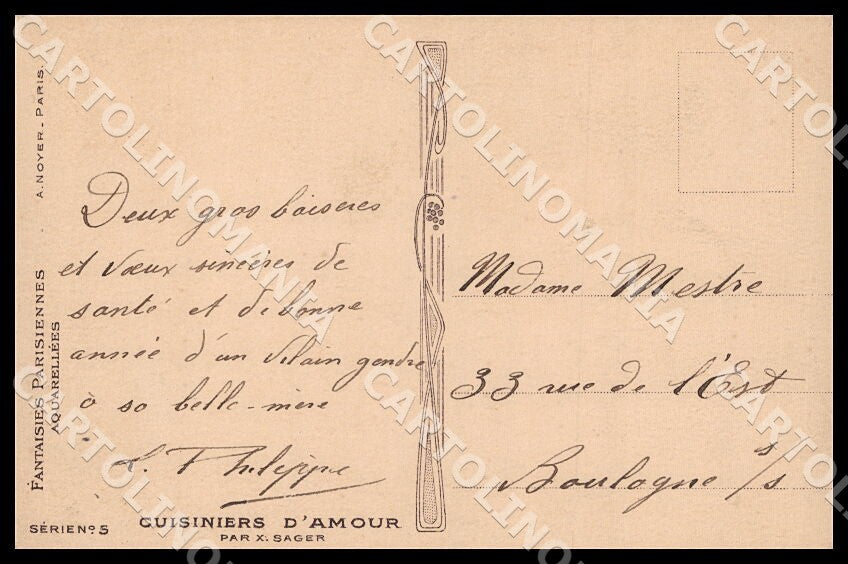 A. NOYER - PARIS.
FANTAISIES PARISIENNES
AQUARELLÉES
Deux gros baiseres
et vœux sincères de
santé et de bonne
année d'un vilain gendre
à sa belle-mère
L. Philippe
Madame Mestre
33 rue de l'Est
Boulogne s/s
SÉRIE Nº 5
CUISINIERS D'AMOUR
PAR X. SAGER
CARTOLINOMANIA
CARTOLINOMANIA
CARTOLINOMANIA
CARTOLINOMANIA
CARTOLINOMANIA
CARTOLINOMANIA